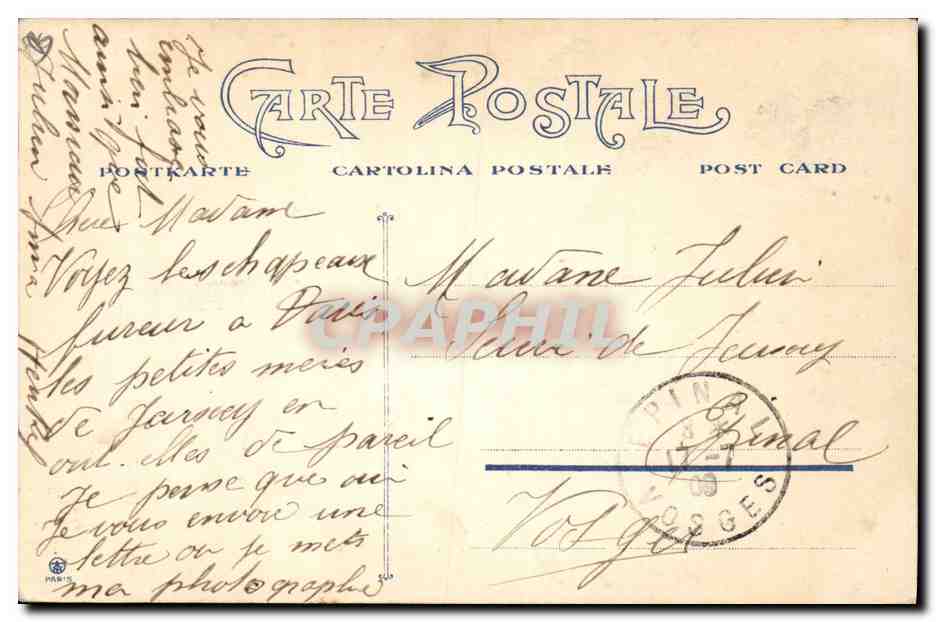 CARTE POSTALE
POSTKARTE CARTOLINA POSTALE POST CARD
Je vous
embrasse
bien fort
ainsi que
Monsieur
Julien Anna Henkef
Chere Madame
Voyez les chapeaux
fureur a Paris
les petites meres
de Jarnay en
ont-elles de pareil
Je pense que oui
Je vous envoie une
lettre ou je mets
ma photographie
Madame Julien
de Jarnay
Epinal
Vosges
EPINAL
17-7
09
VOSGES
PARIS
CPAPHIL